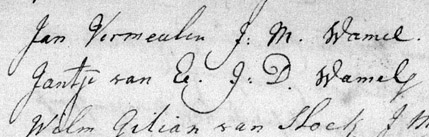 Jan Vermeulen J: M. Wamel.
Jantje van Ee. J: D. Wamel
Welm Gelian van Hock J M